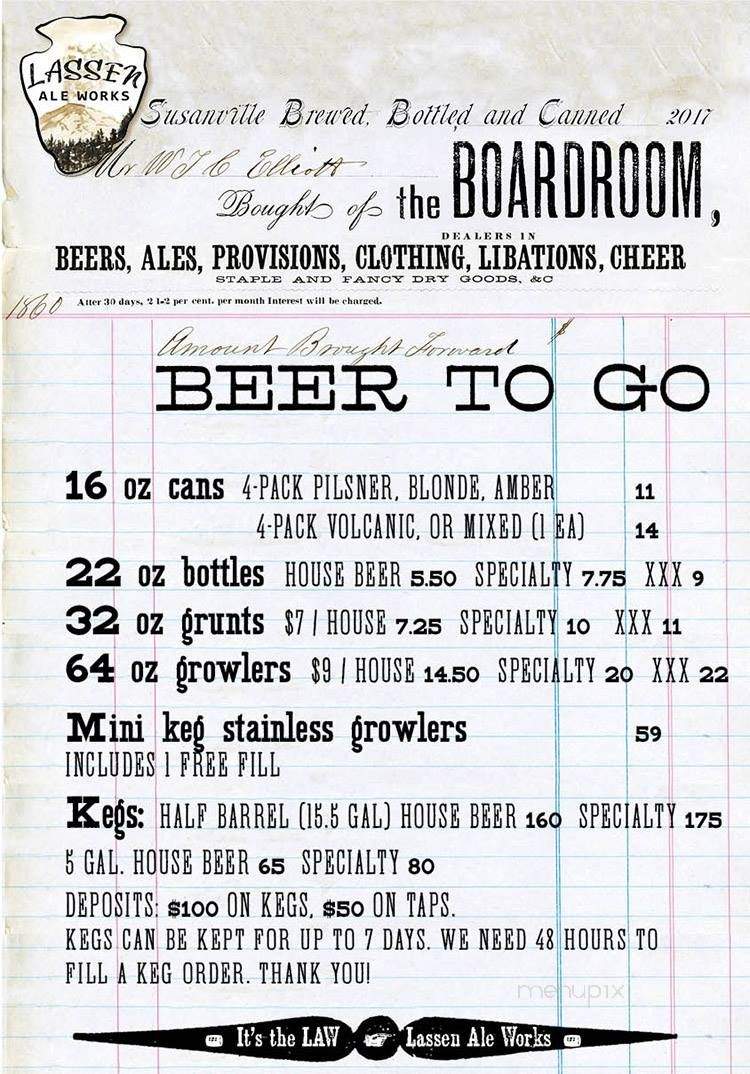 LASSEN
ALE WORKS
Susanville Brewed, Bottled and Canned 2017
Mr W J C Elliott
Bought of the BOARDROOM,
DEALERS IN
BEERS, ALES, PROVISIONS, CLOTHING, LIBATIONS, CHEER
STAPLE AND FANCY DRY GOODS, &C
1860 After 30 days, 2 1-2 per cent. per month Interest will be charged.
Amount Brought Forward $
BEER TO GO
16 oz cans 4-PACK PILSNER, BLONDE, AMBER 11
4-PACK VOLCANIC, OR MIXED (1 EA) 14
22 oz bottles HOUSE BEER 5.50 SPECIALTY 7.75 XXX 9
32 oz grunts $7 / HOUSE 7.25 SPECIALTY 10 XXX 11
64 oz growlers $9 / HOUSE 14.50 SPECIALTY 20 XXX 22
Mini keg stainless growlers 59
INCLUDES 1 FREE FILL
Kegs: HALF BARREL (15.5 GAL) HOUSE BEER 160 SPECIALTY 175
5 GAL. HOUSE BEER 65 SPECIALTY 80
DEPOSITS: $100 ON KEGS, $50 ON TAPS.
KEGS CAN BE KEPT FOR UP TO 7 DAYS. WE NEED 48 HOURS TO
FILL A KEG ORDER. THANK YOU!
menupix
It's the LAW Lassen Ale Works